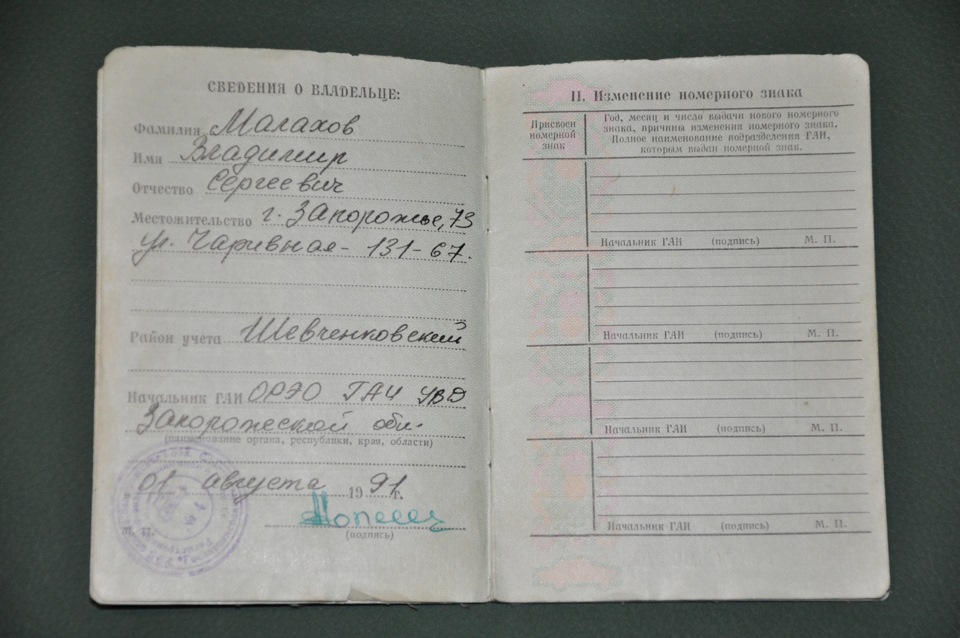 СВЕДЕНИЯ О ВЛАДЕЛЬЦЕ:
Фамилия Малахов
Имя Владимир
Отчество Сергеевич
Местожительство г. Запорожье, 73
ул. Чаривная - 131 - 67.
Район учета Шевченковский
Начальник ГАИ ОРЭО ГАИ УВД
Запорожской обл.
(наименование органа, республики, края, области)
01 августа 1991г.
(подпись)
М. П.
II. Изменение номерного знака
Присвоен номерной знак
Год, месяц и число выдачи нового номерного
знака, причина изменения номерного знака.
Полное наименование подразделения ГАИ,
которым выдан номерной знак.
Начальник ГАИ (подпись) М. П.
Начальник ГАИ (подпись) М. П.
Начальник ГАИ (подпись) М. П.
Начальник ГАИ (подпись) М. П.